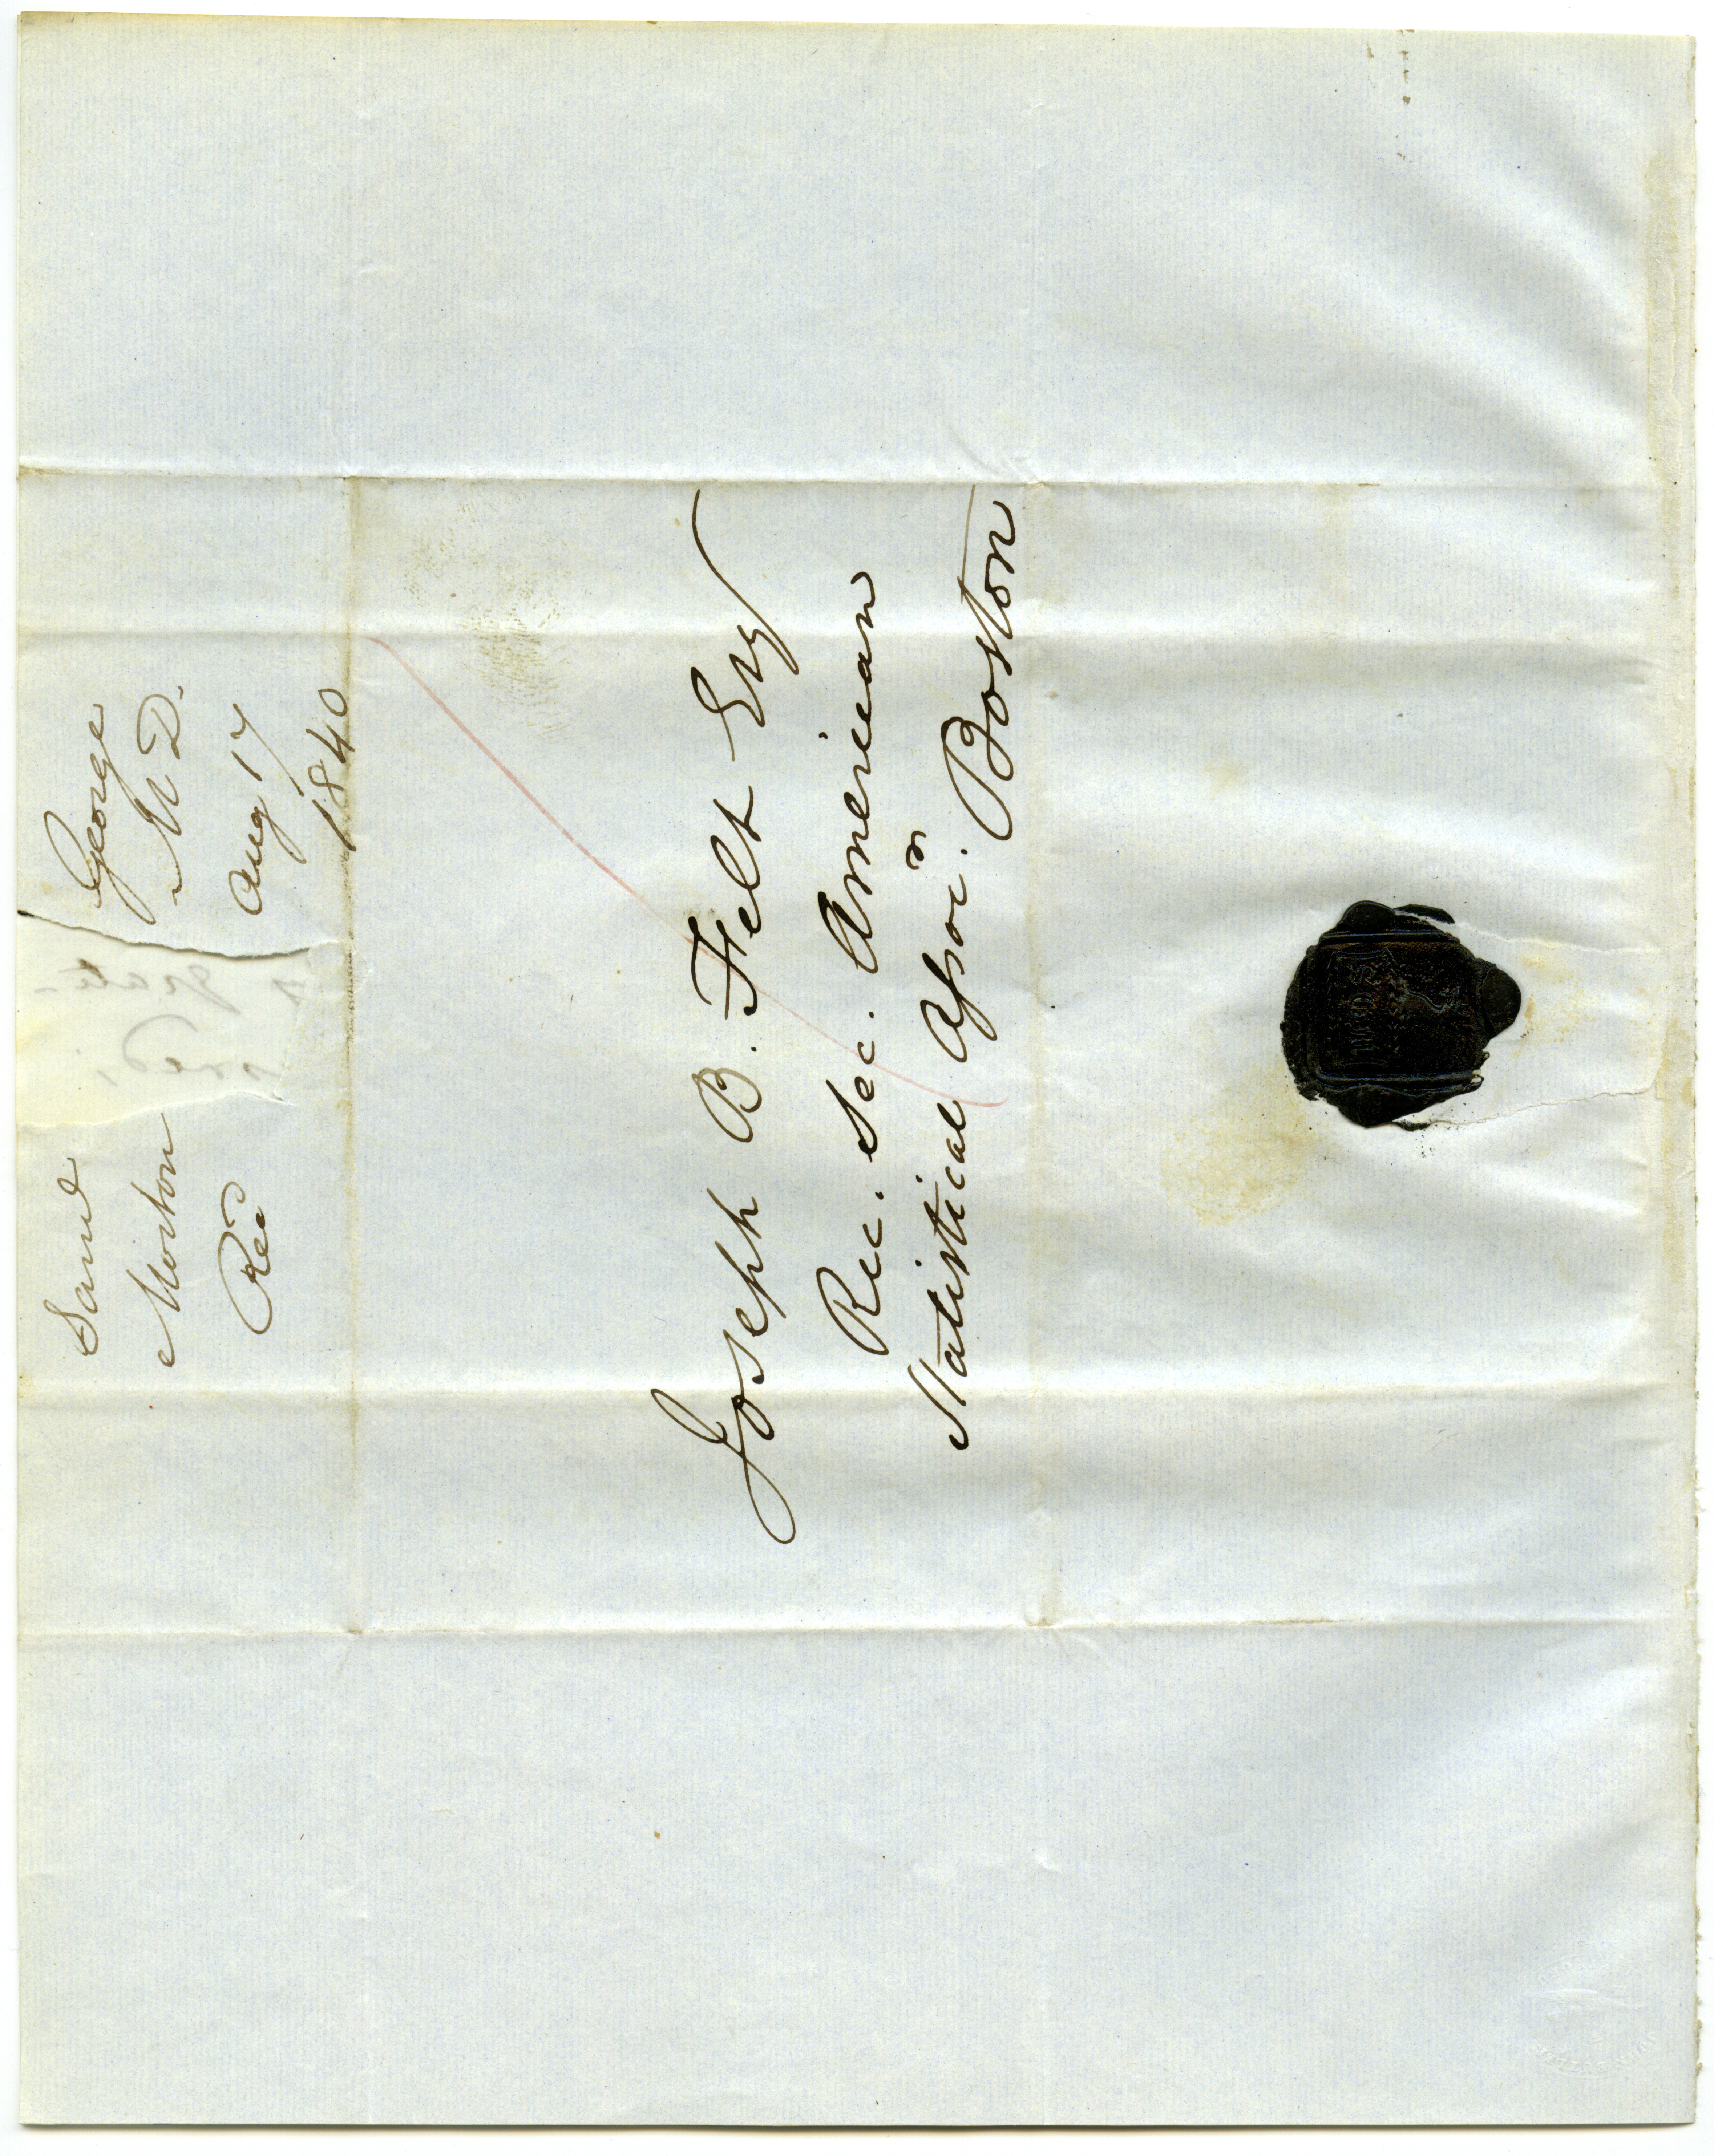 Saml George
Morton M D.
Rec Aug 17
1840
Joseph B. Felt Esq
Rec. Sec. American
Statistical Assocn. Boston